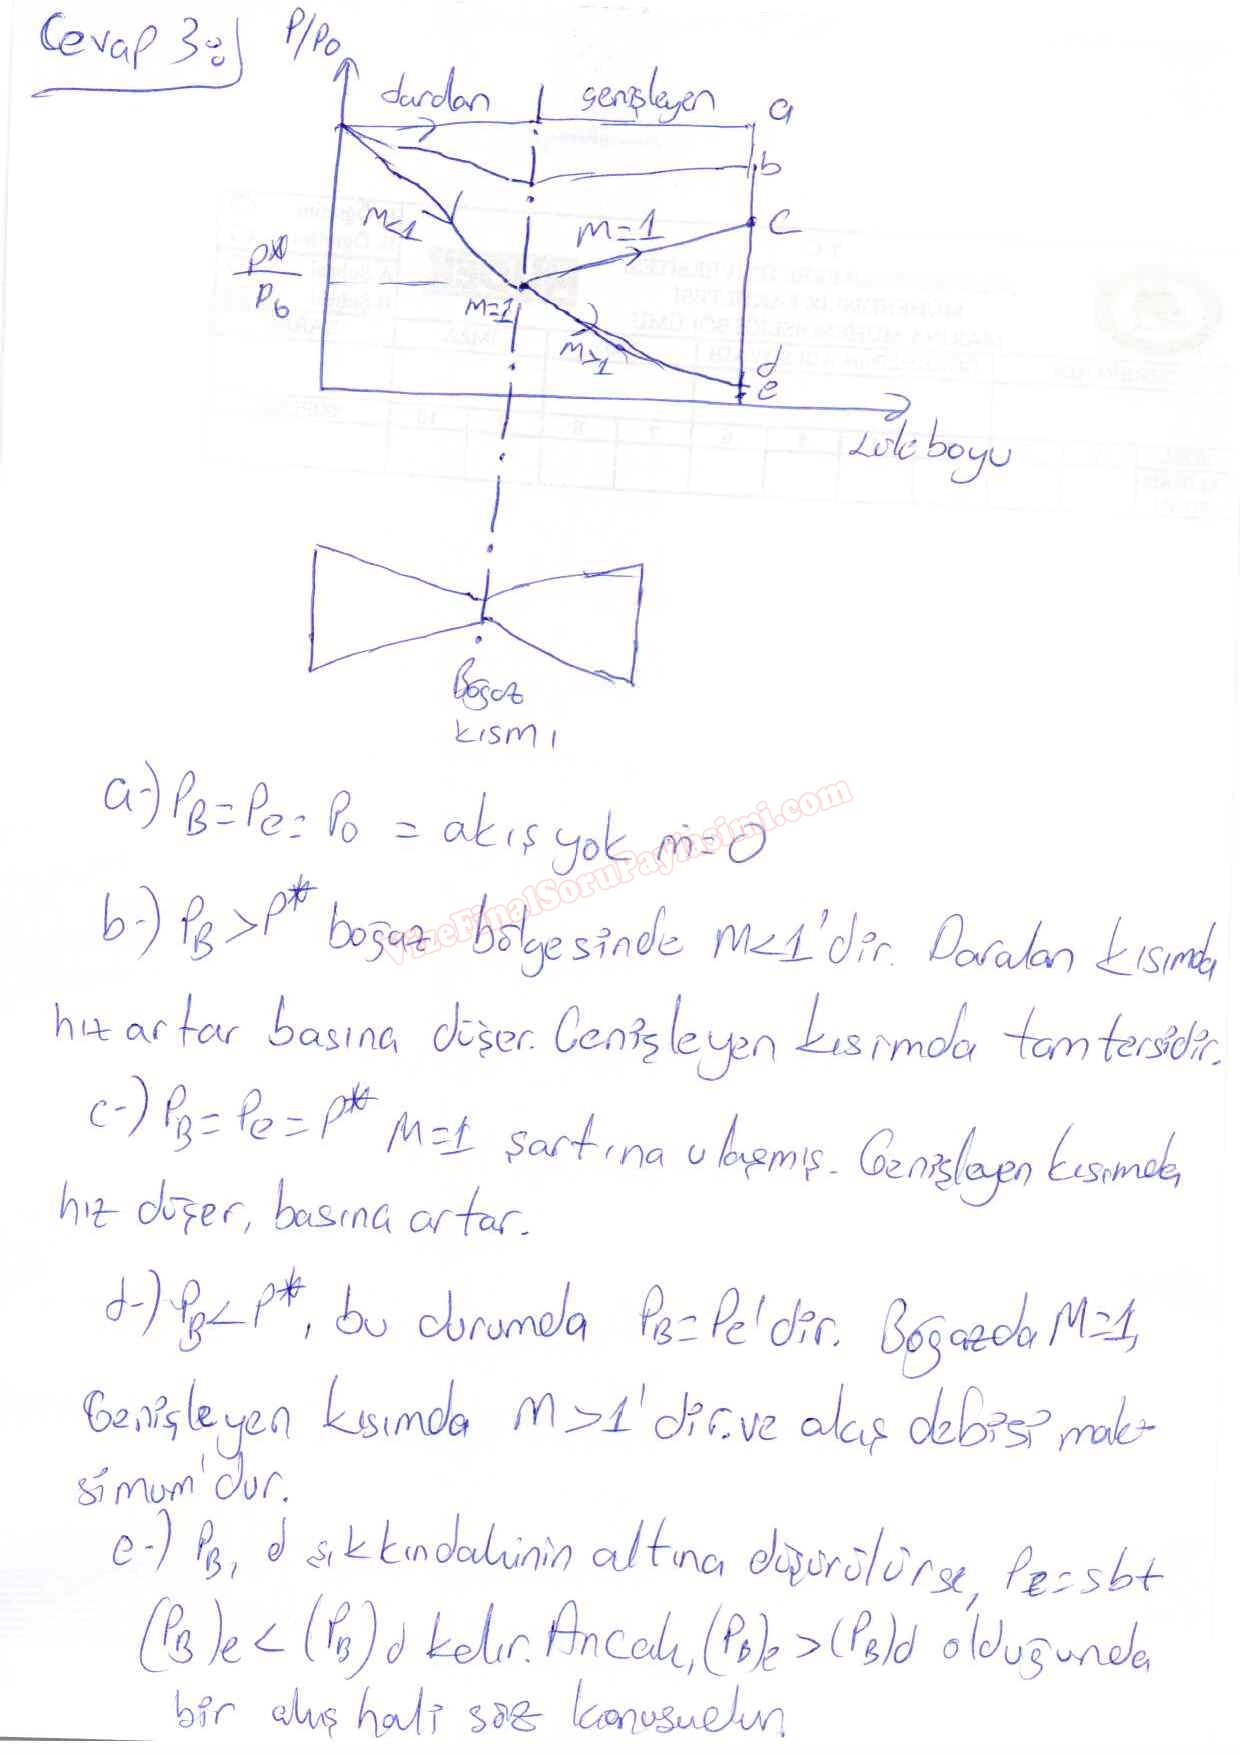 Cevap 3:)
P/P0
daralan
genişleyen
a
b
c
M<1
M=1
P*
P0
M=1
M>1
d
e
Lüle boyu
Boğaz
kısmı
a-) PB=Pe=P0 = akış yok ṁ=0
VizeFinalSoruPaylasimi.com
b-) PB>P* boğaz bölgesinde M<1'dir. Daralan kısımda
hız artar basınç düşer. Genişleyen kısımda tam tersidir.
c-) PB=Pe=P* M=1 şartına ulaşmış. Genişleyen kısımda
hız düşer, basınç artar.
d-) PB<P*, bu durumda PB=Pe'dir. Boğazda M=1,
Genişleyen kısımda M>1'dir. ve akış debisi mak-
simum'dur.
e-) PB, d şıkkındakinin altına düşürülürse, Pe=sbt
(PB)e<(PB)d kalır. Ancak, (PB)e>(PB)d olduğunda
bir akış hali söz konusudur.